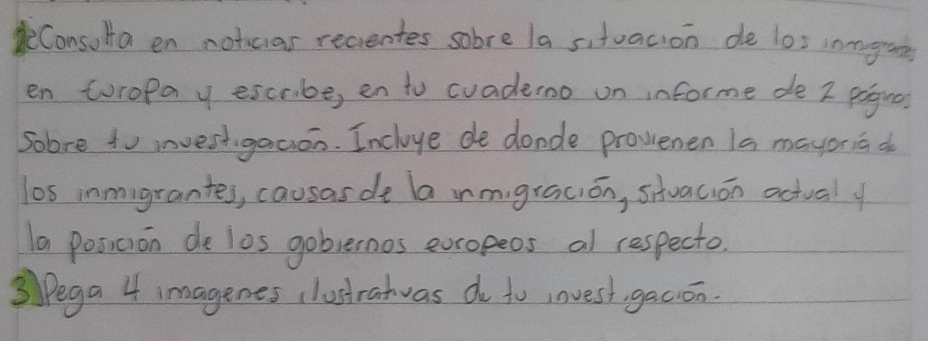 Consulta en noticias recientes sobre la situación de los inmigrantes
en Europa y escribe, en tu cuaderno un informe de 2 páginas
Sobre tu investigación. Incluye de donde provienen la mayoría de
los inmigrantes, causas de la inmigración, situación actual y
la posición de los gobiernos europeos al respecto.
3) Pega 4 imagenes ilustrativas de tu investigación.